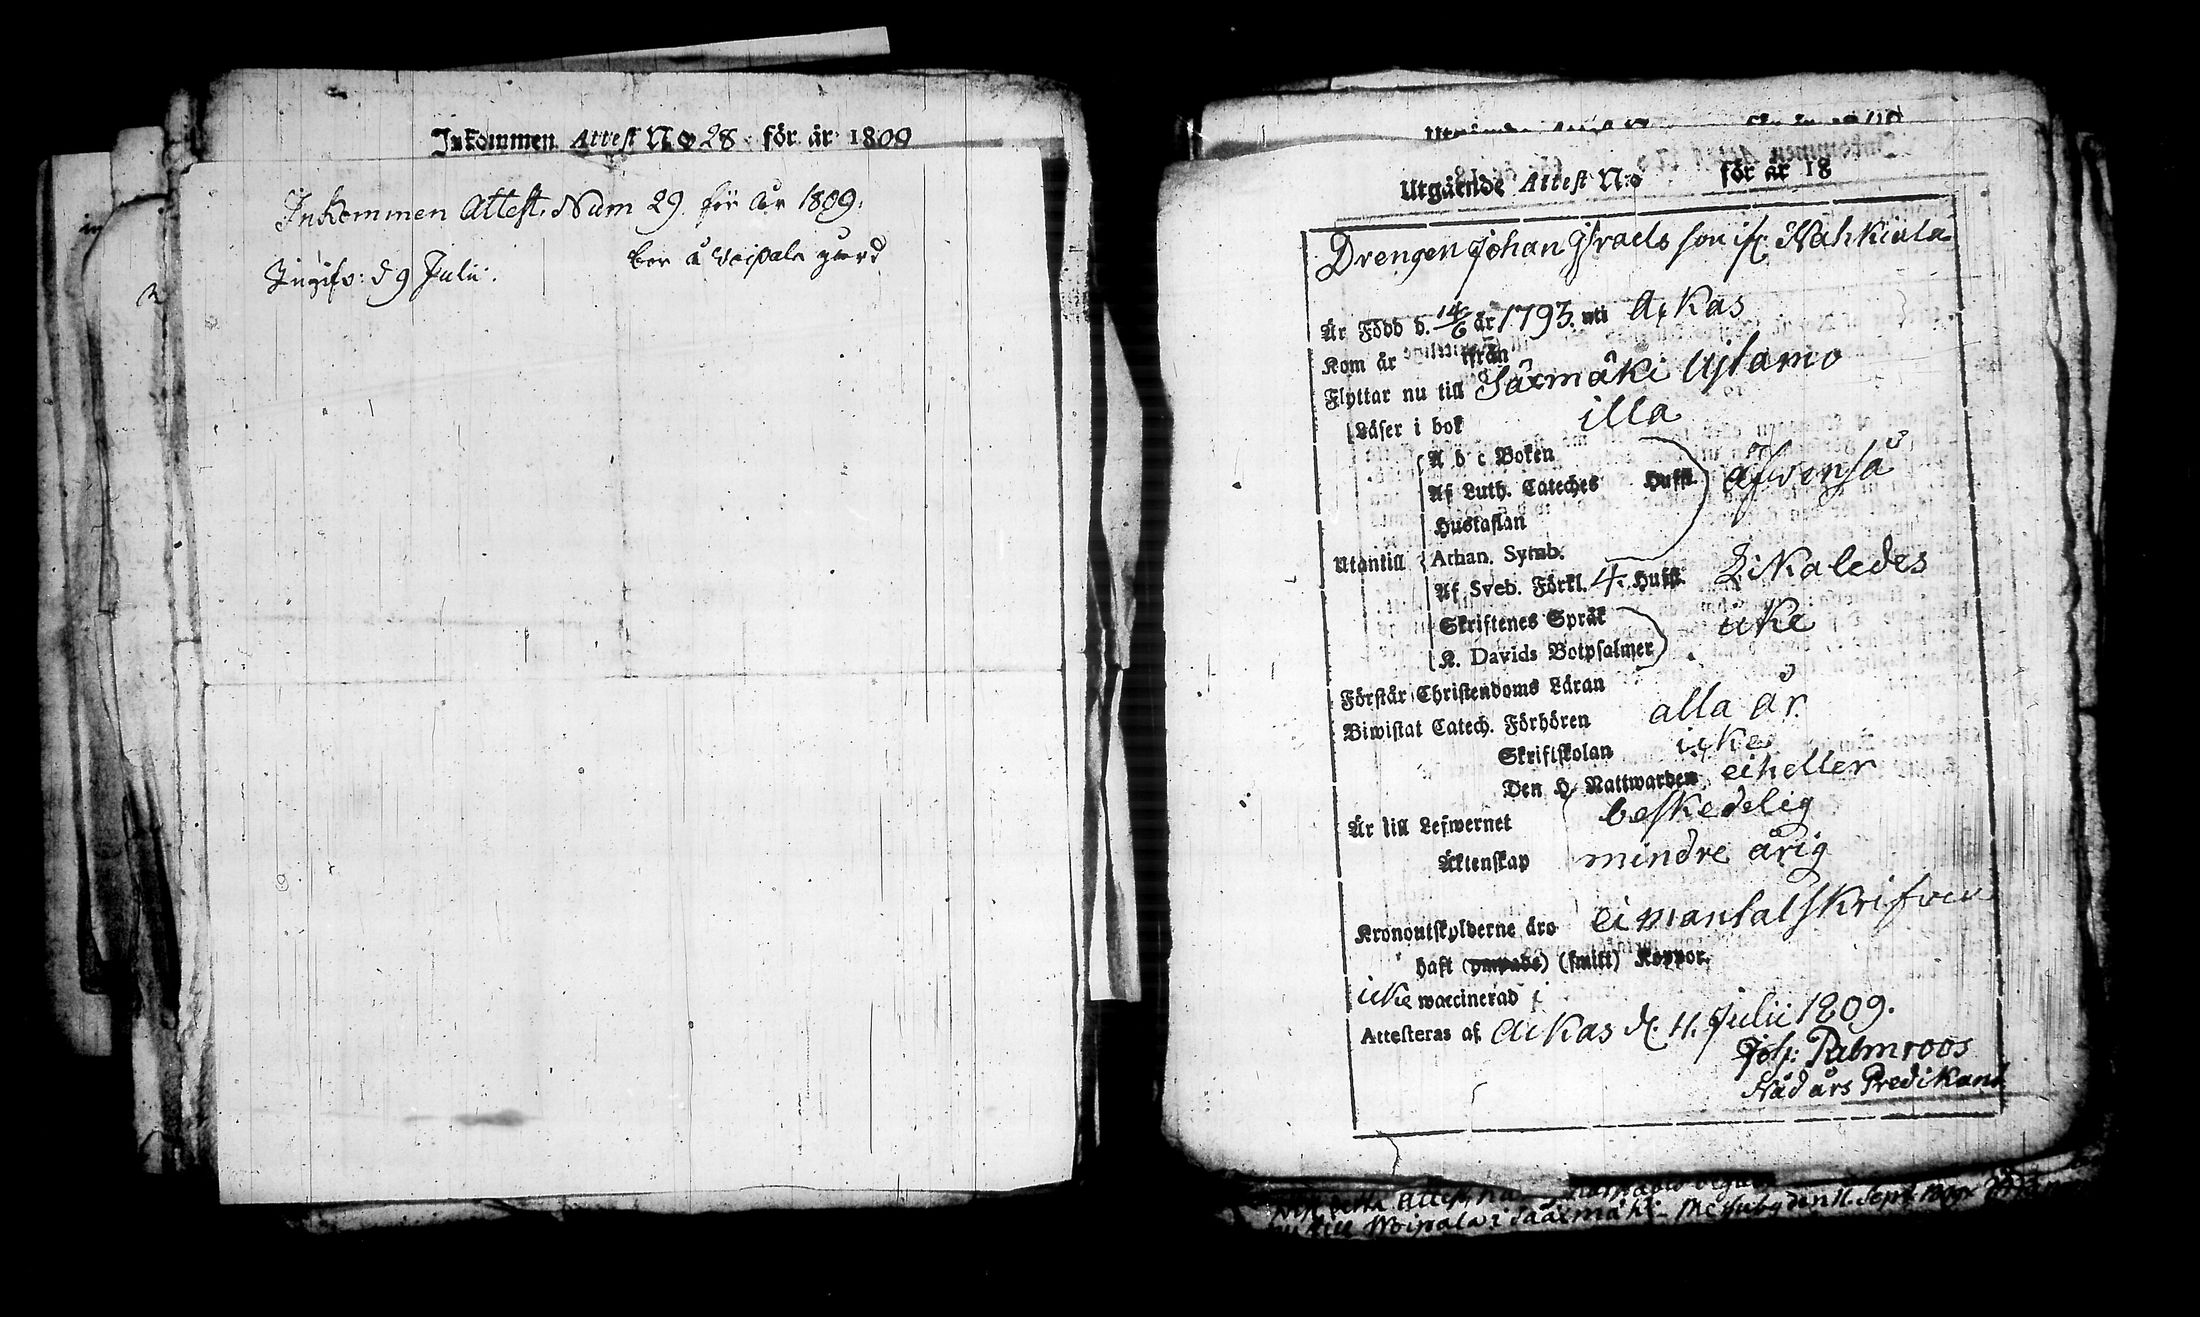 Inkommen Attest No 28 för år 1809
Inkommen Attest. Num 29. för År 1809.
Ingifv: d 9 Julii.
bor å Voipala gård
Utgående Attest N:o för år 18
Drengen Johan Israels son ifr. Nahkiala
Är Född d. 14/6 år 1793. uti Ackas
Kom år ifrån
Flyttar nu till Säxmäki Ujstamo
Läser i bok illa
A b c Boken
Af Luth. Cateches Hufst. äfwenså
Hustaflan
Utantill Athan. Symb.
Af Sveb. Förkl. 4. Hufst. Likaledes
Skriftenes Språk icke
K. Davids Botpsalmer
Förstår Christendoms Läran
Biwistat Catech. Förhören alla år.
Skriftskolan icke
Den H. Nattwarden ei heller
Är till Lefwernet beskedelig
Äktenskap mindre årig
Kronoutskylderne äro ei mantalskrifven
haft (ympade) (smitt) Koppor.
icke waccinerad
Attesteras af Ackas d. 11. Julii 1809.
Joh: Palmroos
Nådårs Predikant
detta Attest
till Woipala i Sääxmäki den 11. Sept. 1809